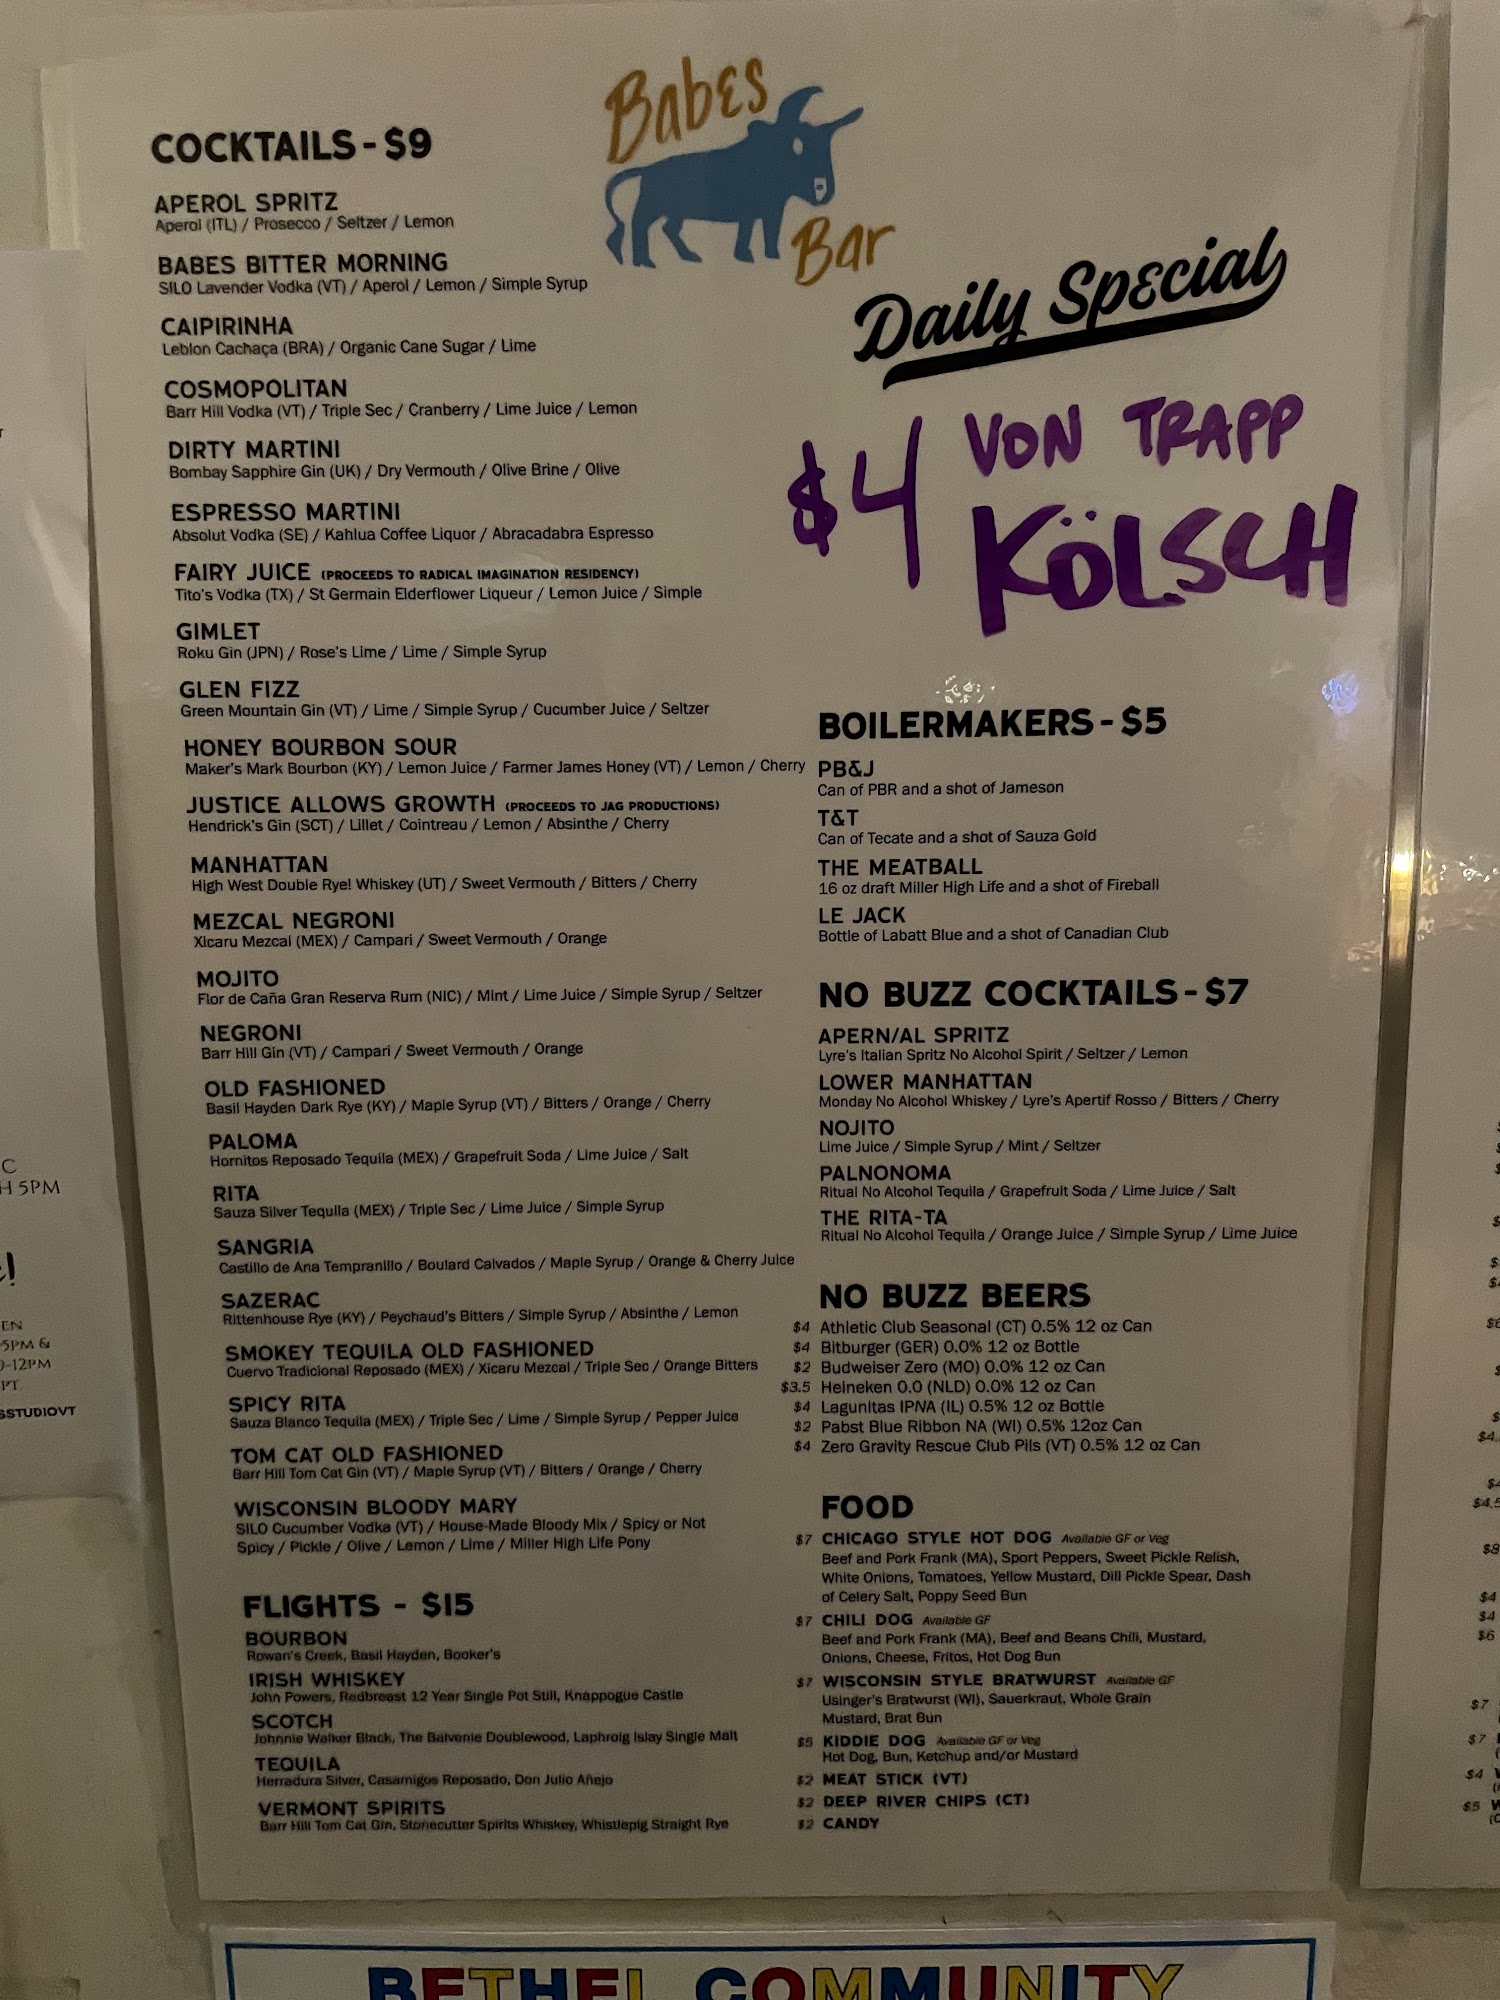 Babes
Bar
COCKTAILS - $9
APEROL SPRITZ
Aperol (ITL) / Prosecco / Seltzer / Lemon
BABES BITTER MORNING
SILO Lavender Vodka (VT) / Aperol / Lemon / Simple Syrup
CAIPIRINHA
Leblon Cachaça (BRA) / Organic Cane Sugar / Lime
COSMOPOLITAN
Barr Hill Vodka (VT) / Triple Sec / Cranberry / Lime Juice / Lemon
DIRTY MARTINI
Bombay Sapphire Gin (UK) / Dry Vermouth / Olive Brine / Olive
ESPRESSO MARTINI
Absolut Vodka (SE) / Kahlua Coffee Liquor / Abracadabra Espresso
FAIRY JUICE (PROCEEDS TO RADICAL IMAGINATION RESIDENCY)
Tito's Vodka (TX) / St Germain Elderflower Liqueur / Lemon Juice / Simple
GIMLET
Roku Gin (JPN) / Rose's Lime / Lime / Simple Syrup
GLEN FIZZ
Green Mountain Gin (VT) / Lime / Simple Syrup / Cucumber Juice / Seltzer
HONEY BOURBON SOUR
Maker's Mark Bourbon (KY) / Lemon Juice / Farmer James Honey (VT) / Lemon / Cherry
JUSTICE ALLOWS GROWTH (PROCEEDS TO JAG PRODUCTIONS)
Hendrick's Gin (SCT) / Lillet / Cointreau / Lemon / Absinthe / Cherry
MANHATTAN
High West Double Rye! Whiskey (UT) / Sweet Vermouth / Bitters / Cherry
MEZCAL NEGRONI
Xicaru Mezcal (MEX) / Campari / Sweet Vermouth / Orange
MOJITO
Flor de Caña Gran Reserva Rum (NIC) / Mint / Lime Juice / Simple Syrup / Seltzer
NEGRONI
Barr Hill Gin (VT) / Campari / Sweet Vermouth / Orange
OLD FASHIONED
Basil Hayden Dark Rye (KY) / Maple Syrup (VT) / Bitters / Orange / Cherry
PALOMA
Hornitos Reposado Tequila (MEX) / Grapefruit Soda / Lime Juice / Salt
RITA
Sauza Silver Tequila (MEX) / Triple Sec / Lime Juice / Simple Syrup
SANGRIA
Castillo de Ana Tempranillo / Boulard Calvados / Maple Syrup / Orange & Cherry Juice
SAZERAC
Rittenhouse Rye (KY) / Peychaud's Bitters / Simple Syrup / Absinthe / Lemon
SMOKEY TEQUILA OLD FASHIONED
Cuervo Tradicional Reposado (MEX) / Xicaru Mezcal / Triple Sec / Orange Bitters
SPICY RITA
Sauza Blanco Tequila (MEX) / Triple Sec / Lime / Simple Syrup / Pepper Juice
TOM CAT OLD FASHIONED
Barr Hill Tom Cat Gin (VT) / Maple Syrup (VT) / Bitters / Orange / Cherry
WISCONSIN BLOODY MARY
SILO Cucumber Vodka (VT) / House-Made Bloody Mix / Spicy or Not
Spicy / Pickle / Olive / Lemon / Lime / Miller High Life Pony
FLIGHTS - $15
BOURBON
Rowan's Creek, Basil Hayden, Booker's
IRISH WHISKEY
John Powers, Redbreast 12 Year Single Pot Still, Knappogue Castle
SCOTCH
Johnnie Walker Black, The Balvenie Doublewood, Laphroig Islay Single Malt
TEQUILA
Herradura Silver, Casamigos Reposado, Don Julio Añejo
VERMONT SPIRITS
Barr Hill Tom Cat Gin, Stonecutter Spirits Whiskey, Whistlepig Straight Rye
Daily Special
$4 VON TRAPP
KÖLSCH
BOILERMAKERS - $5
PB&J
Can of PBR and a shot of Jameson
T&T
Can of Tecate and a shot of Sauza Gold
THE MEATBALL
16 oz draft Miller High Life and a shot of Fireball
LE JACK
Bottle of Labatt Blue and a shot of Canadian Club
NO BUZZ COCKTAILS - $7
APERN/AL SPRITZ
Lyre's Italian Spritz No Alcohol Spirit / Seltzer / Lemon
LOWER MANHATTAN
Monday No Alcohol Whiskey / Lyre's Apertif Rosso / Bitters / Cherry
NOJITO
Lime Juice / Simple Syrup / Mint / Seltzer
PALNONOMA
Ritual No Alcohol Tequila / Grapefruit Soda / Lime Juice / Salt
THE RITA-TA
Ritual No Alcohol Tequila / Orange Juice / Simple Syrup / Lime Juice
NO BUZZ BEERS
$4 Athletic Club Seasonal (CT) 0.5% 12 oz Can
$4 Bitburger (GER) 0.0% 12 oz Bottle
$2 Budweiser Zero (MO) 0.0% 12 oz Can
$3.5 Heineken 0.0 (NLD) 0.0% 12 oz Can
$4 Lagunitas IPNA (IL) 0.5% 12 oz Bottle
$2 Pabst Blue Ribbon NA (WI) 0.5% 12oz Can
$4 Zero Gravity Rescue Club Pils (VT) 0.5% 12 oz Can
FOOD
$7 CHICAGO STYLE HOT DOG Available GF or Veg
Beef and Pork Frank (MA), Sport Peppers, Sweet Pickle Relish,
White Onions, Tomatoes, Yellow Mustard, Dill Pickle Spear, Dash
of Celery Salt, Poppy Seed Bun
$7 CHILI DOG Available GF
Beef and Pork Frank (MA), Beef and Beans Chili, Mustard,
Onions, Cheese, Fritos, Hot Dog Bun
$7 WISCONSIN STYLE BRATWURST Available GF
Usinger's Bratwurst (WI), Sauerkraut, Whole Grain
Mustard, Brat Bun
$5 KIDDIE DOG Available GF or Veg
Hot Dog, Bun, Ketchup and/or Mustard
$2 MEAT STICK (VT)
$2 DEEP RIVER CHIPS (CT)
$2 CANDY
BETHEL COMMUNITY
H 5PM
5PM &
9-12PM
SSTUDIOVT
$4
$4
$6
$7
$7
$4
$5